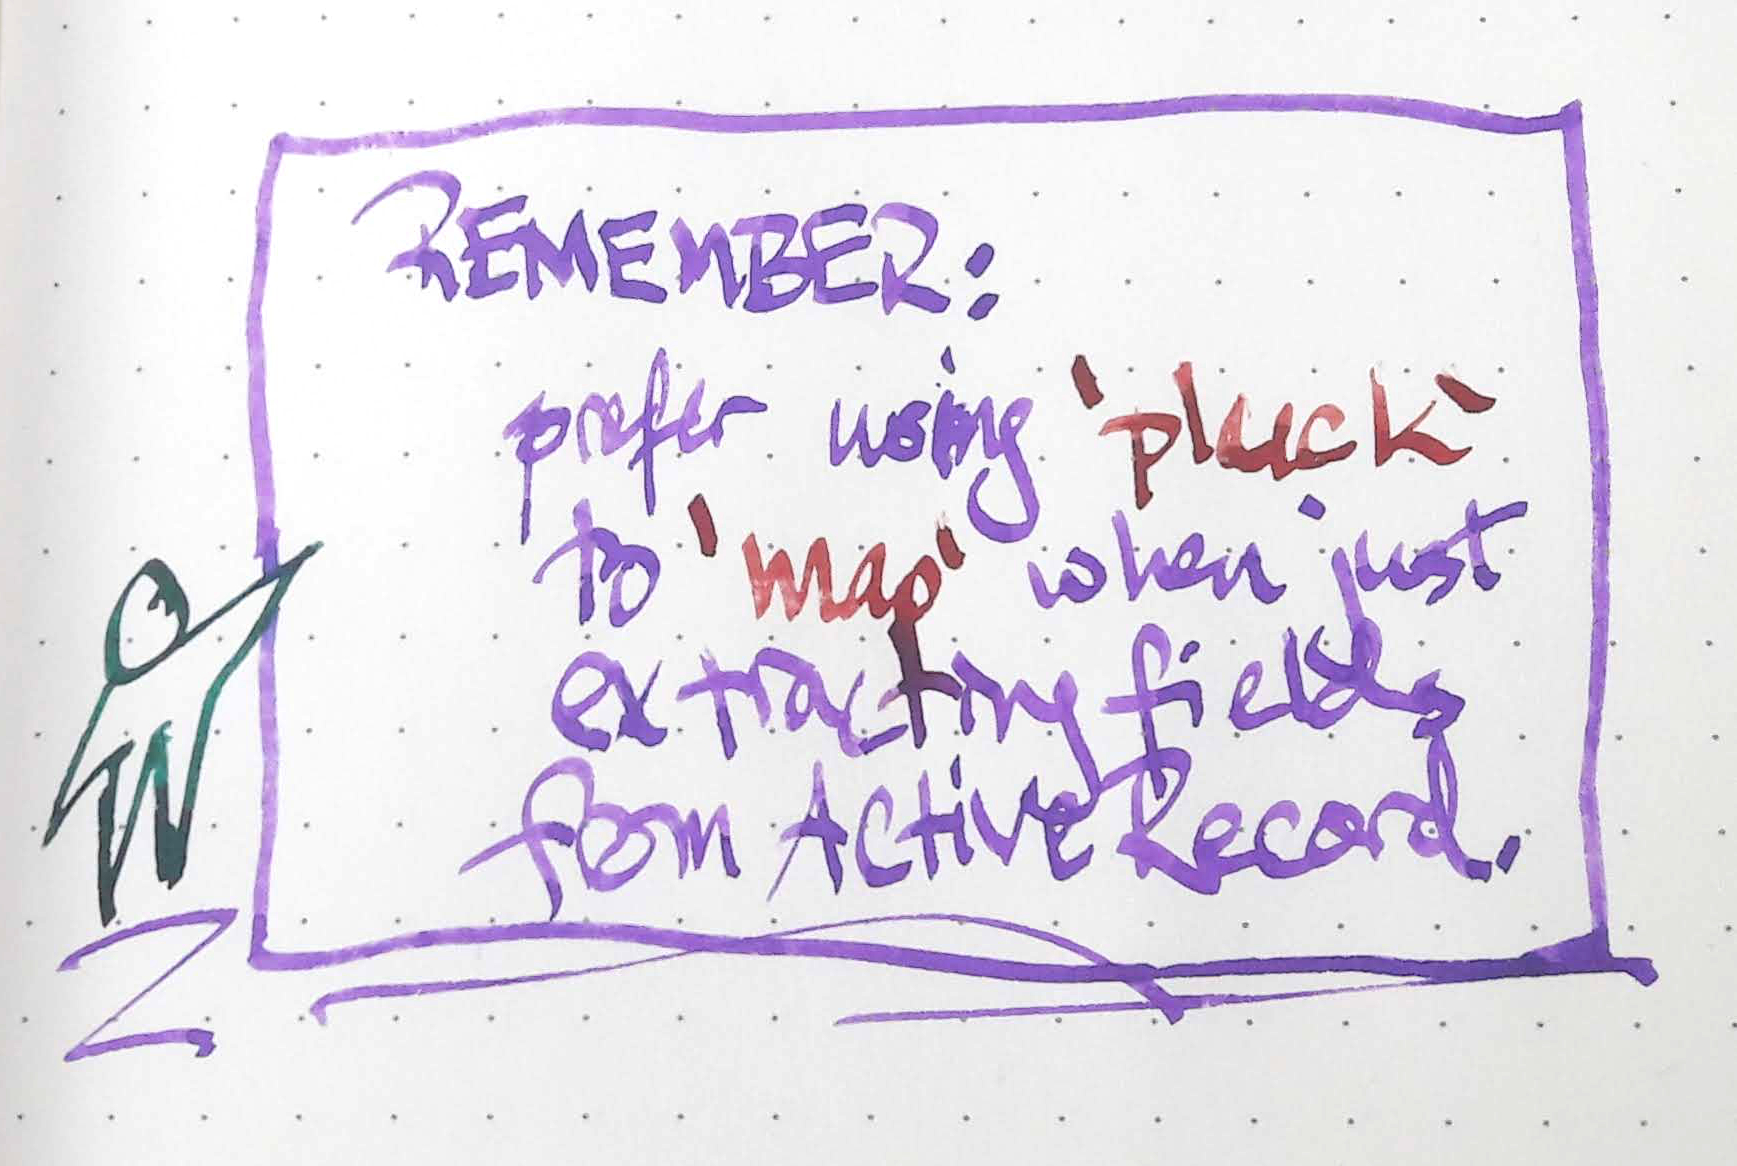 REMEMBER:
prefer using `pluck`
to `map` when just
extracting fields
from Active Record.